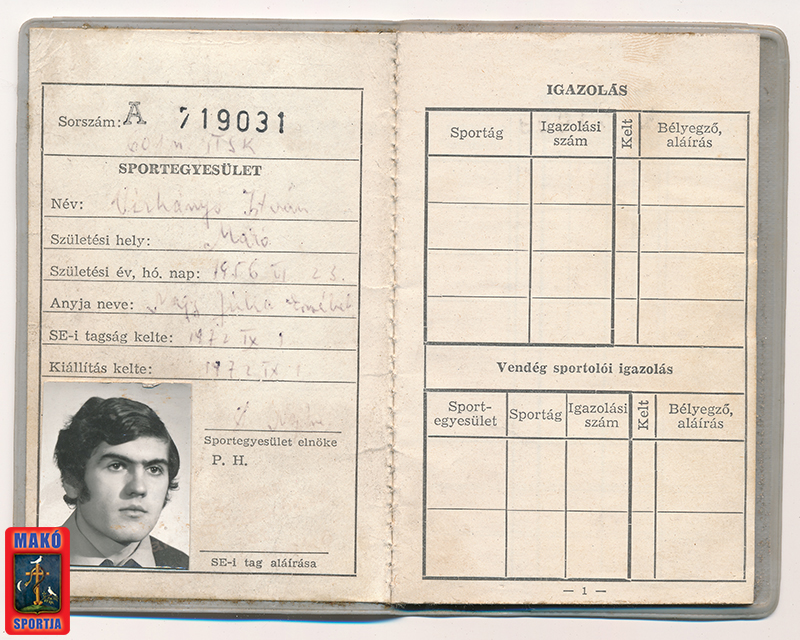 Sorszám: A 719031
ITSK
SPORTEGYESÜLET
Név: István
Születési hely: Makó
Születési év, hó. nap: 1956 VI 23.
Anyja neve: Nagy Júlia Erzsébet
SE-i tagság kelte: 1972 IX 1
Kiállítás kelte: 1972 IX 1.
Sportegyesület elnöke
P. H.
SE-i tag aláírása
MAKÓ
SPORTJA
IGAZOLÁS
Sportág Igazolási szám Kelt Bélyegző, aláírás
Vendég sportolói igazolás
Sport-egyesület Sportág Igazolási szám Kelt Bélyegző, aláírás
— 1 —